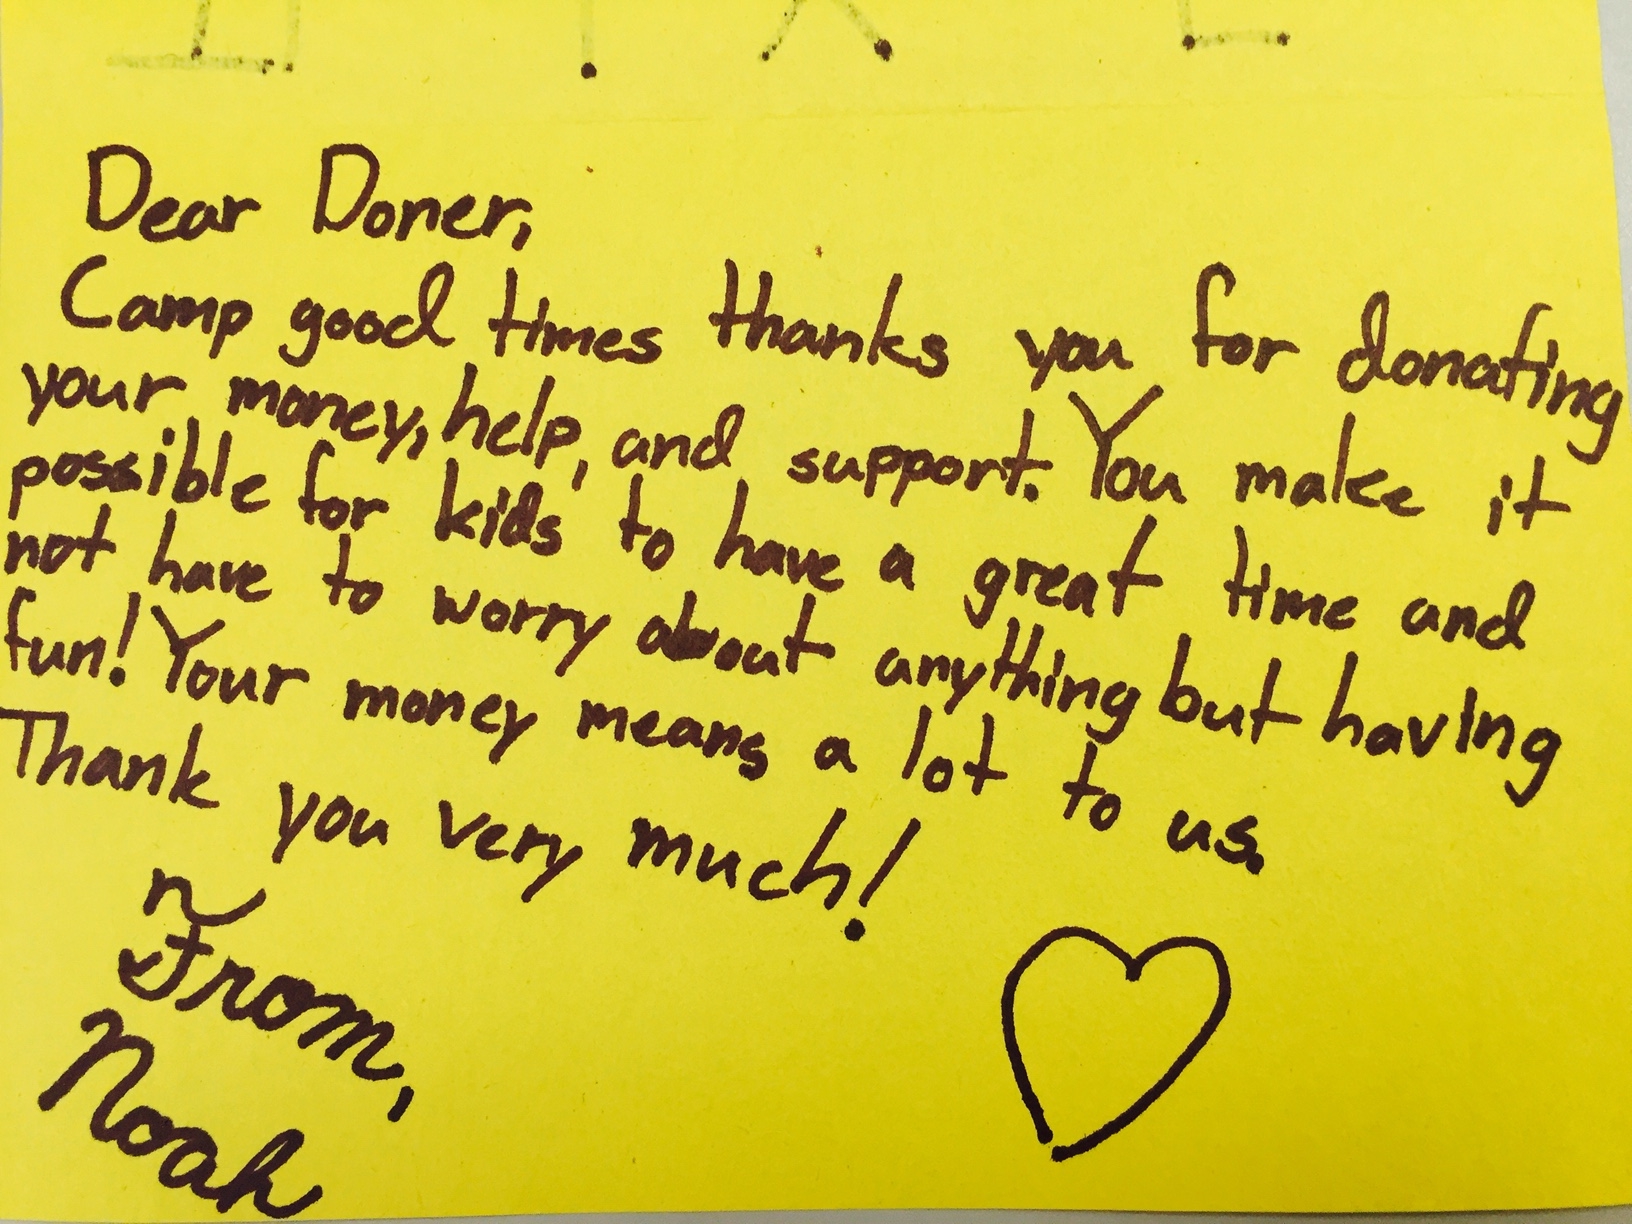 Dear Doner,
Camp good times thanks you for donating
your money, help, and support. You make it
possible for kids to have a great time and
not have to worry about anything but having
fun! Your money means a lot to us.
Thank you very much!
From,
Noah